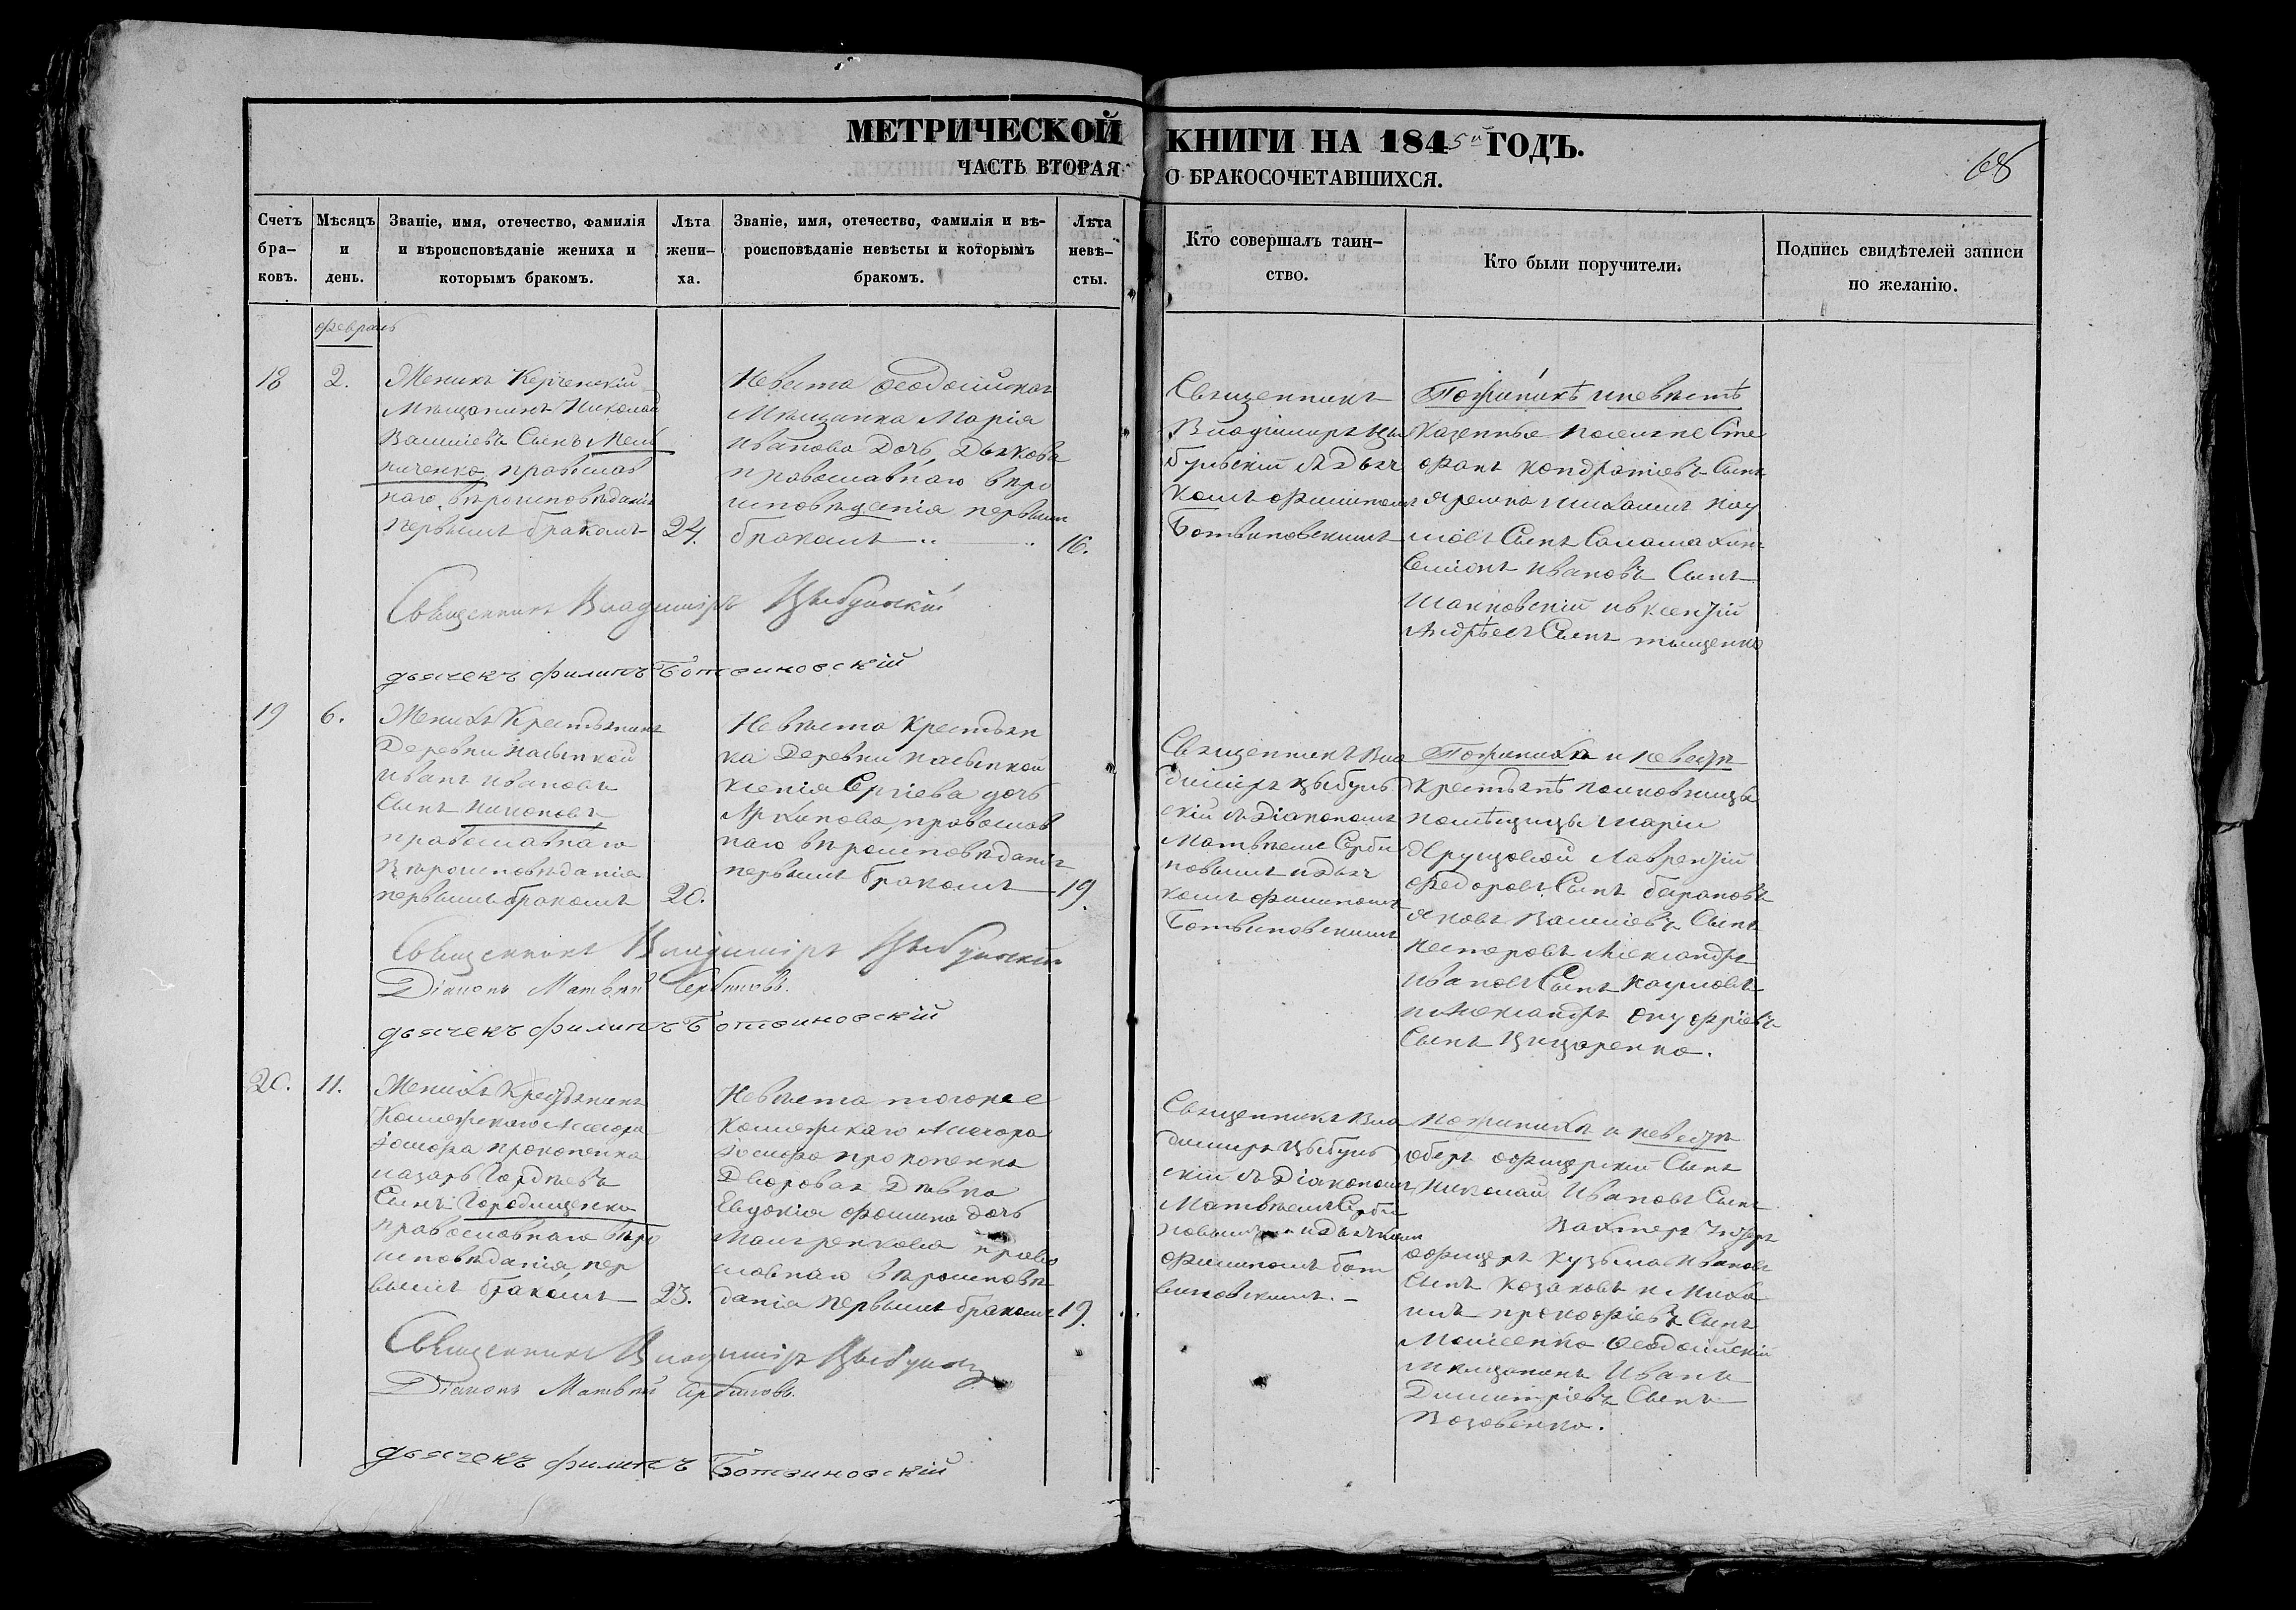 МЕТРИЧЕСКОЙ КНИГИ НА 1845й ГОДЪ.
ЧАСТЬ ВТОРАЯ О БРАКОСОЧЕТАВШИХСЯ.
68
Счетъ бра-ковъ.
Мѣсяцъ и день.
Званіе, имя, отечество, фамилія
и вѣроисповѣданіе жениха и
которымъ бракомъ.
Лѣта жени-ха.
Званіе, имя, отечество, фамилія и вѣ-
роисповѣданіе невѣсты и которымъ
бракомъ.
Лѣта невѣ-сты.
Кто совершалъ таин-
ство.
Кто были поручители.
Подпись свидѣтелей записи
по желанію.
февраль
18
2.
Женихъ Керченскій
Мѣщанинъ Николай
Васильевъ Сынъ Мель
ниченко, православ
наго вѣроисповѣданія
первымъ бракомъ
24.
Невѣста Феодосійская
Мѣщанка Марія
Иванова Дочь, Дьякова
православнаго вѣро
исповѣданія первымъ
бракомъ
16.
Священникъ
Владиміръ Цы
бульскій съ дьяч
комъ Филипомъ
Ботвиновскимъ
По женихѣ и невѣстѣ
Казенные поселяне Сте
фанъ Кондратіевъ Сынъ
Яремка Михаилъ Нау
мовъ Сынъ
Семіонъ Ивановъ Сынъ
и Авксентій
Андреевъ Сынъ Тыщенко
Священникъ Владиміръ Цыбульскій
дьячекъ Филипъ Ботвиновскій
19
6.
Женихъ Крестьянинъ
Деревни Насыпкой
Иванъ Ивановъ
Сынъ Никоновъ,
православнаго
Вѣроисповѣданія
первымъ бракомъ
20.
Невѣста Крестьян
ка Деревни Насыпкой
Ксенія Сергіева дочь
Архипова, православ
наго вѣроисповѣданія
первымъ бракомъ
19.
Священникъ Вла
диміръ Цыбуль
скій съ Діакономъ
Матвѣемъ Серби
новымъ и дьяч
комъ Филипомъ
Ботвиновскимъ
По женихѣ и невѣстѣ
Крестьянѣ полковницы
помѣщицы Маріи
Хрущовой Лаврентій
Федоровъ Сынъ Барановъ
Яковъ Васильевъ Сынъ
Нестеровъ Александръ
Ивановъ Сынъ Наумовъ
и Александръ Онуфріевъ
Сынъ
Священникъ Владиміръ Цыбульскій
Діаконъ Матвѣй Сербиновъ.
дьячекъ Филипъ Ботвиновскій
20.
11.
Женихъ Крестьянинъ
Коллежскаго Асесора
Іосифа Прокопенка
Назаръ Гордѣевъ
Сынъ Городнищенко
православнаго вѣро
исповѣданія, пер
вымъ бракомъ
23.
Невѣста тогоже
Коллежскаго Асесора
Іосифа Прокопенка
Дворовая Дѣвка
Евдокія Фомина дочь
право
славнаго вѣроисповѣ
данія первымъ бракомъ
19.
Священникъ Вла
диміръ Цыбуль
скій съ Діакономъ
Матвѣемъ Серби
новымъ и дьячкомъ
Филипомъ Бот
виновскимъ.
По женихѣ и невѣстѣ
Оберъ офицерскій Сынъ
Николай Ивановъ Сынъ
Вахтеръ Унтеръ
офицеръ Кузьма Ивановъ
Сынъ Козаковъ и Миха
илъ Прокофіевъ Сынъ
Моисеенко Феодосійскій
Мѣщанинъ Иванъ
Димитріевъ Сынъ
Возовенко.
Священникъ Владиміръ Цыбульскій
Діаконъ Матвѣй Сербиновъ.
дьячекъ Филипъ Ботвиновскій